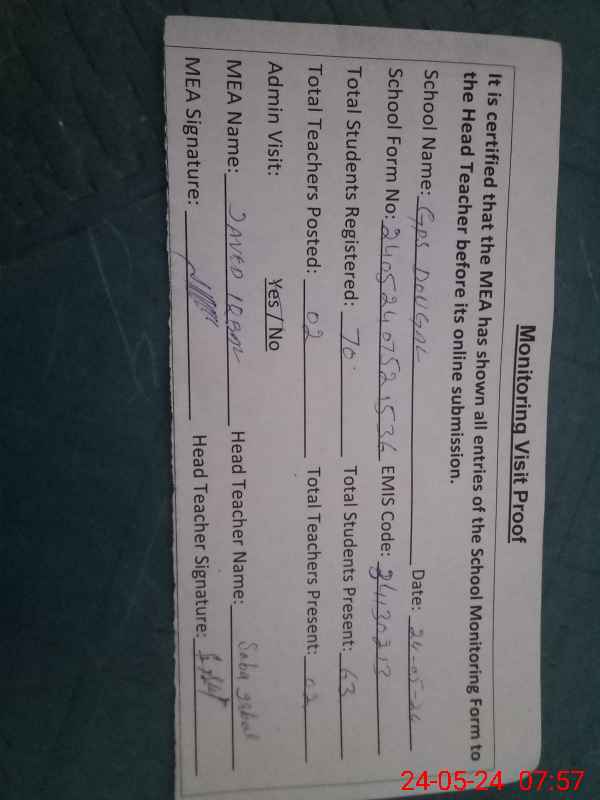 Monitoring Visit Proof
It is certified that the MEA has shown all entries of the School Monitoring Form to
the Head Teacher before its online submission.
School Name: GPS DOUGAL Date: 24-05-24
School Form No: EMIS Code:
Total Students Registered: 70 Total Students Present: 63
Total Teachers Posted: 02 Total Teachers Present: 02
Admin Visit: Yes / No
MEA Name: JAVED IQBAL Head Teacher Name: Saba
MEA Signature: Head Teacher Signature:
24-05-24 07:57